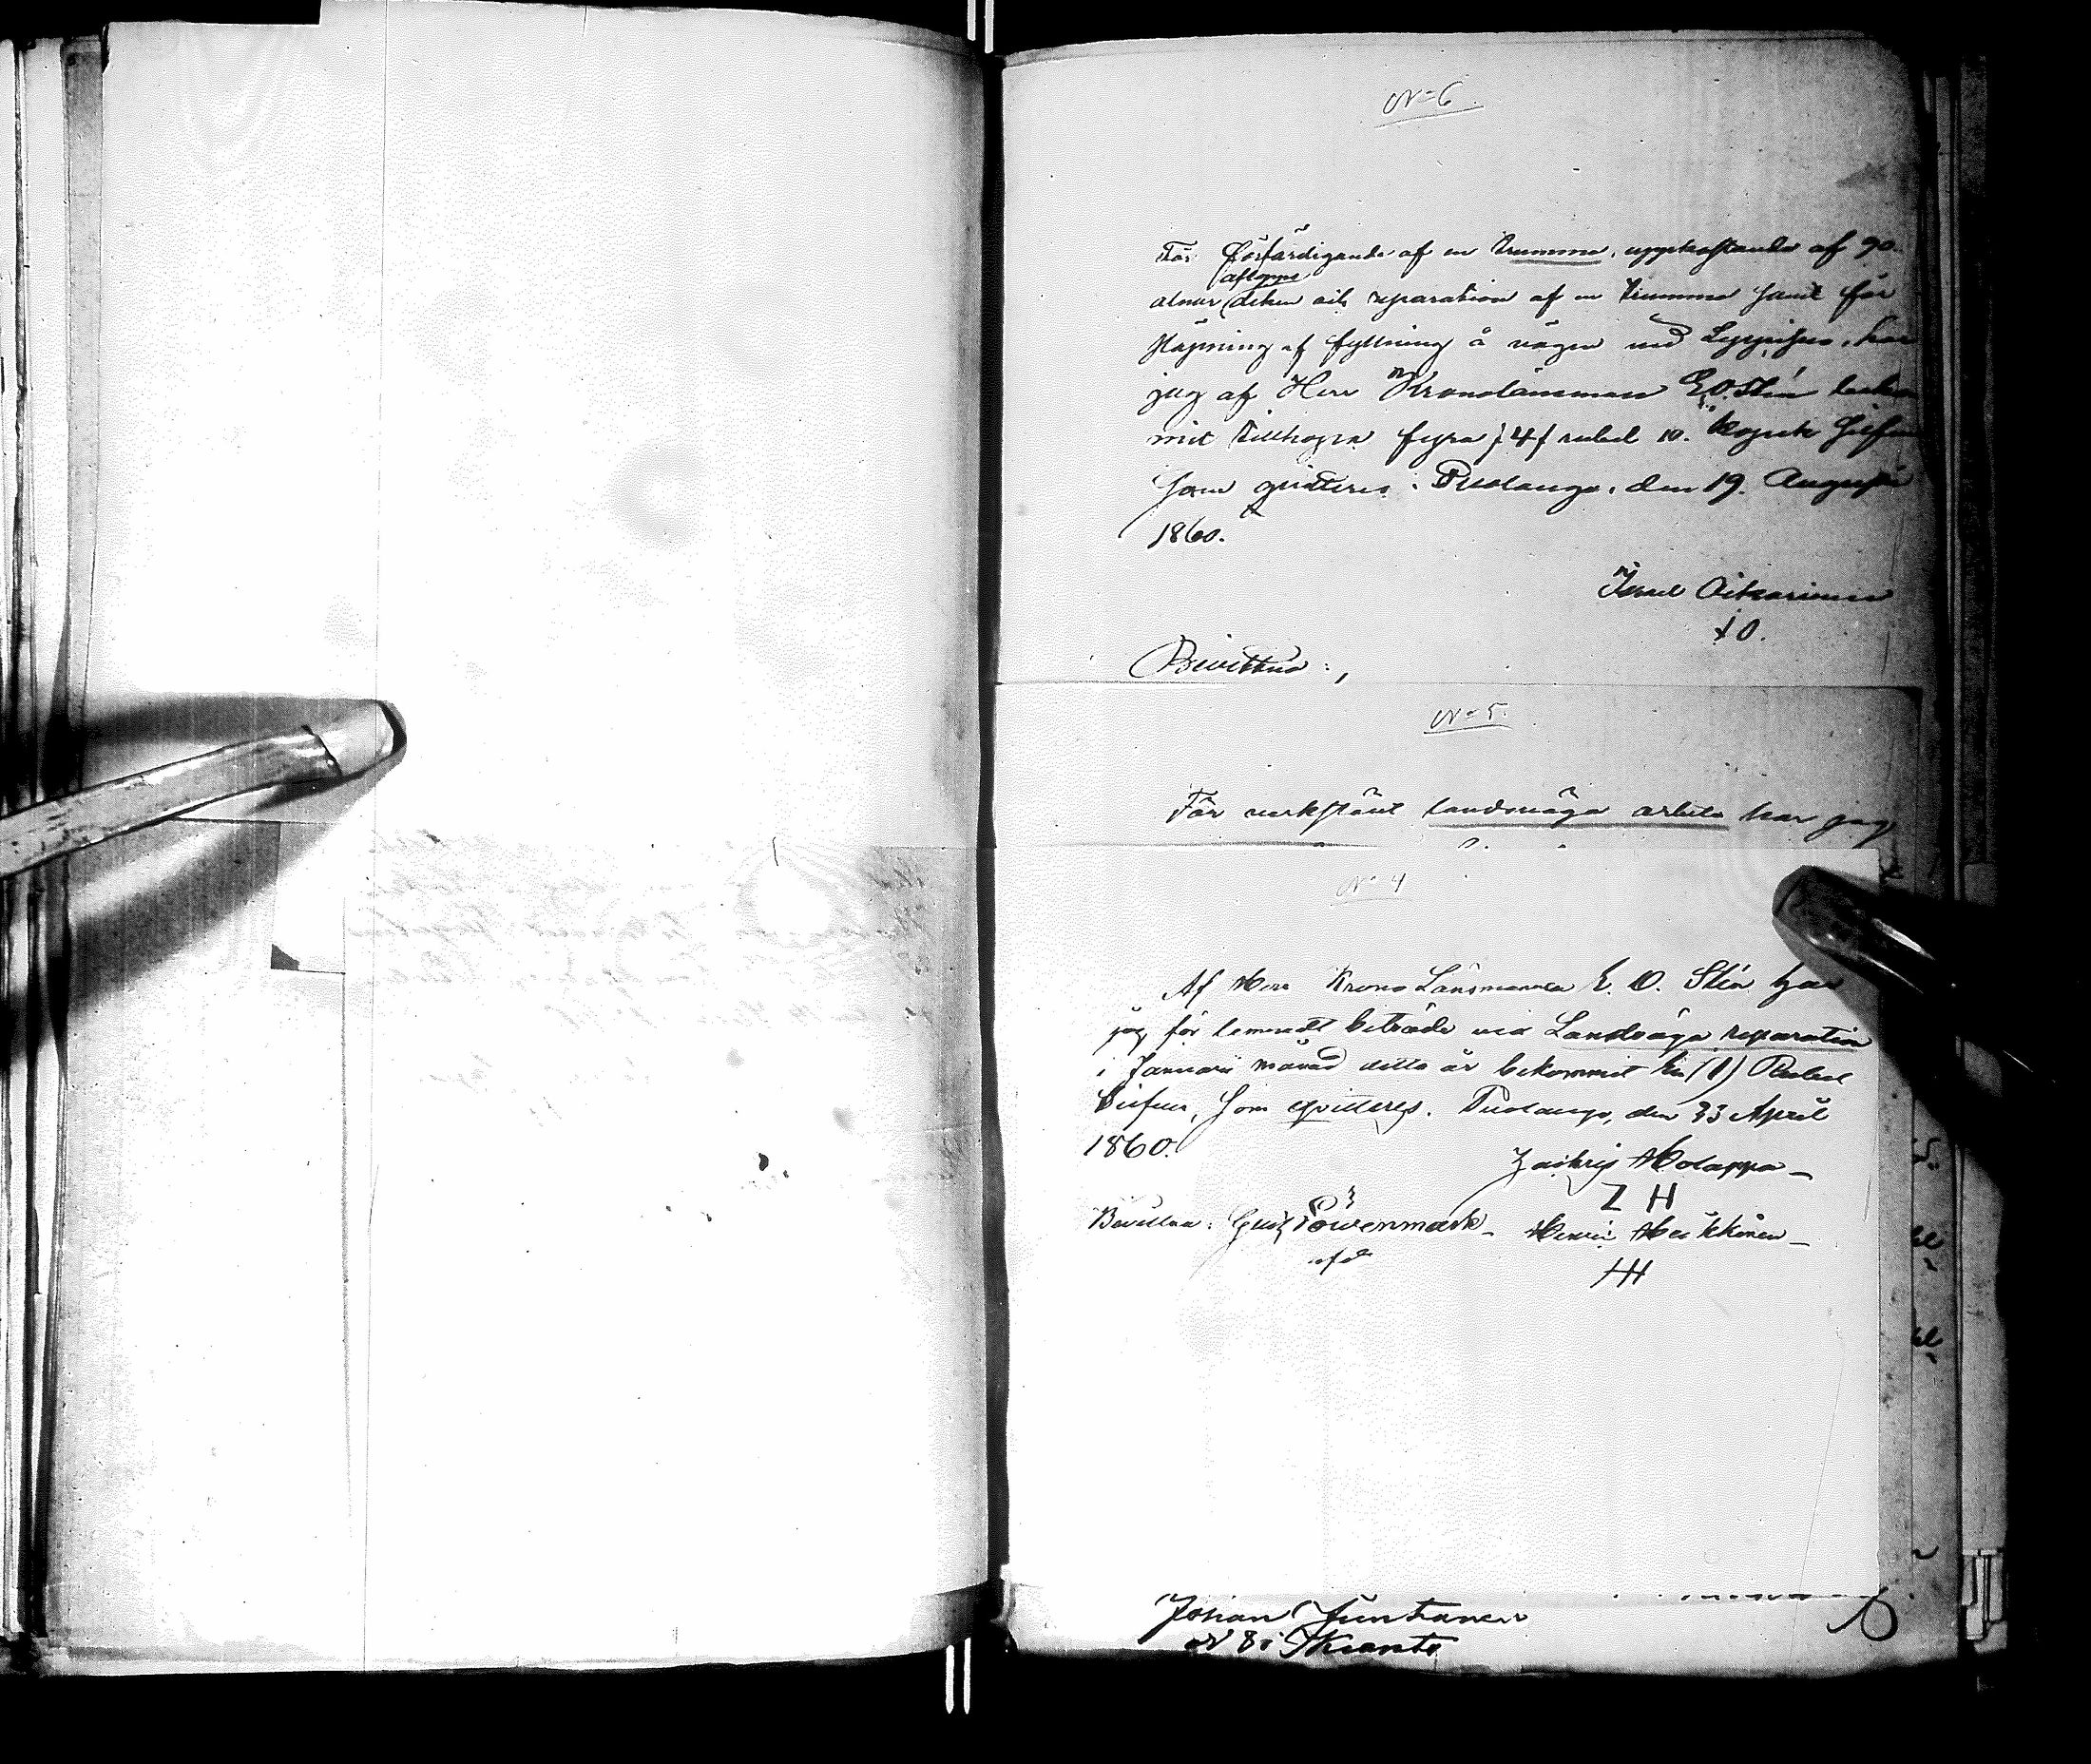 N=6
För förfärdigande af en trumma, uppkastande af 90.
afloppe
alnar diken och reparation af en trumma samt för
höjning af fyllning å vägen vid har
jag af Herr Kronolänsman E. O. Stén
mit tillhopa fyra /4/ rubel 10. kopek Silfver
som qvitteras. Puolango, den 19. Augusti
1860.
Israel Oikarinen
I O.
Bevittna:,
N=5.
För verkstäldt landsväga arbete har jag
N=4
Af Herr Krono Länsmannen E. O. Stén har
jag för lemnadt beträde vid Landsväga reparation
i Januarii månad detta år bekommit En (1) Rubel
Silfver, som qvitteres. Puolango, den 23 April
1860.
Zachris Holappa
Z H
Bevittna: Gust Löwenmark Henric Heikkinen
HH
Johan Juntunen
N 8 i Kianto